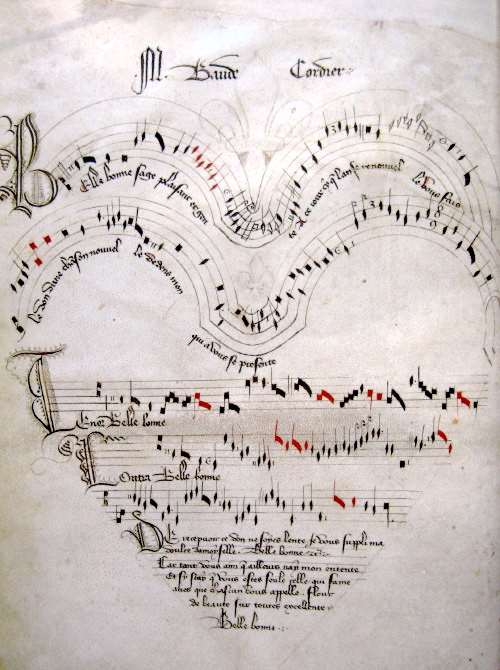 M. Baude Cordier
Belle bonne sage plaisant et gen te A ce iour cy q lan se renouvel Je vous fais
le don dune chāson nouvel Je dedens mon
qui a vous se presente
Tenor Belle bonne
Contra Belle bonne
De recepuoir ce don ne soyes lente Je vous suppli ma
doulce damoyselle. Belle bonne
Car tant vous aim q aillours nay mon entente
Et sy scay q vous estes seule celle qui fame
aues que chascun vous appelle. flour
de beaute sur toutes excellente
Belle bonne